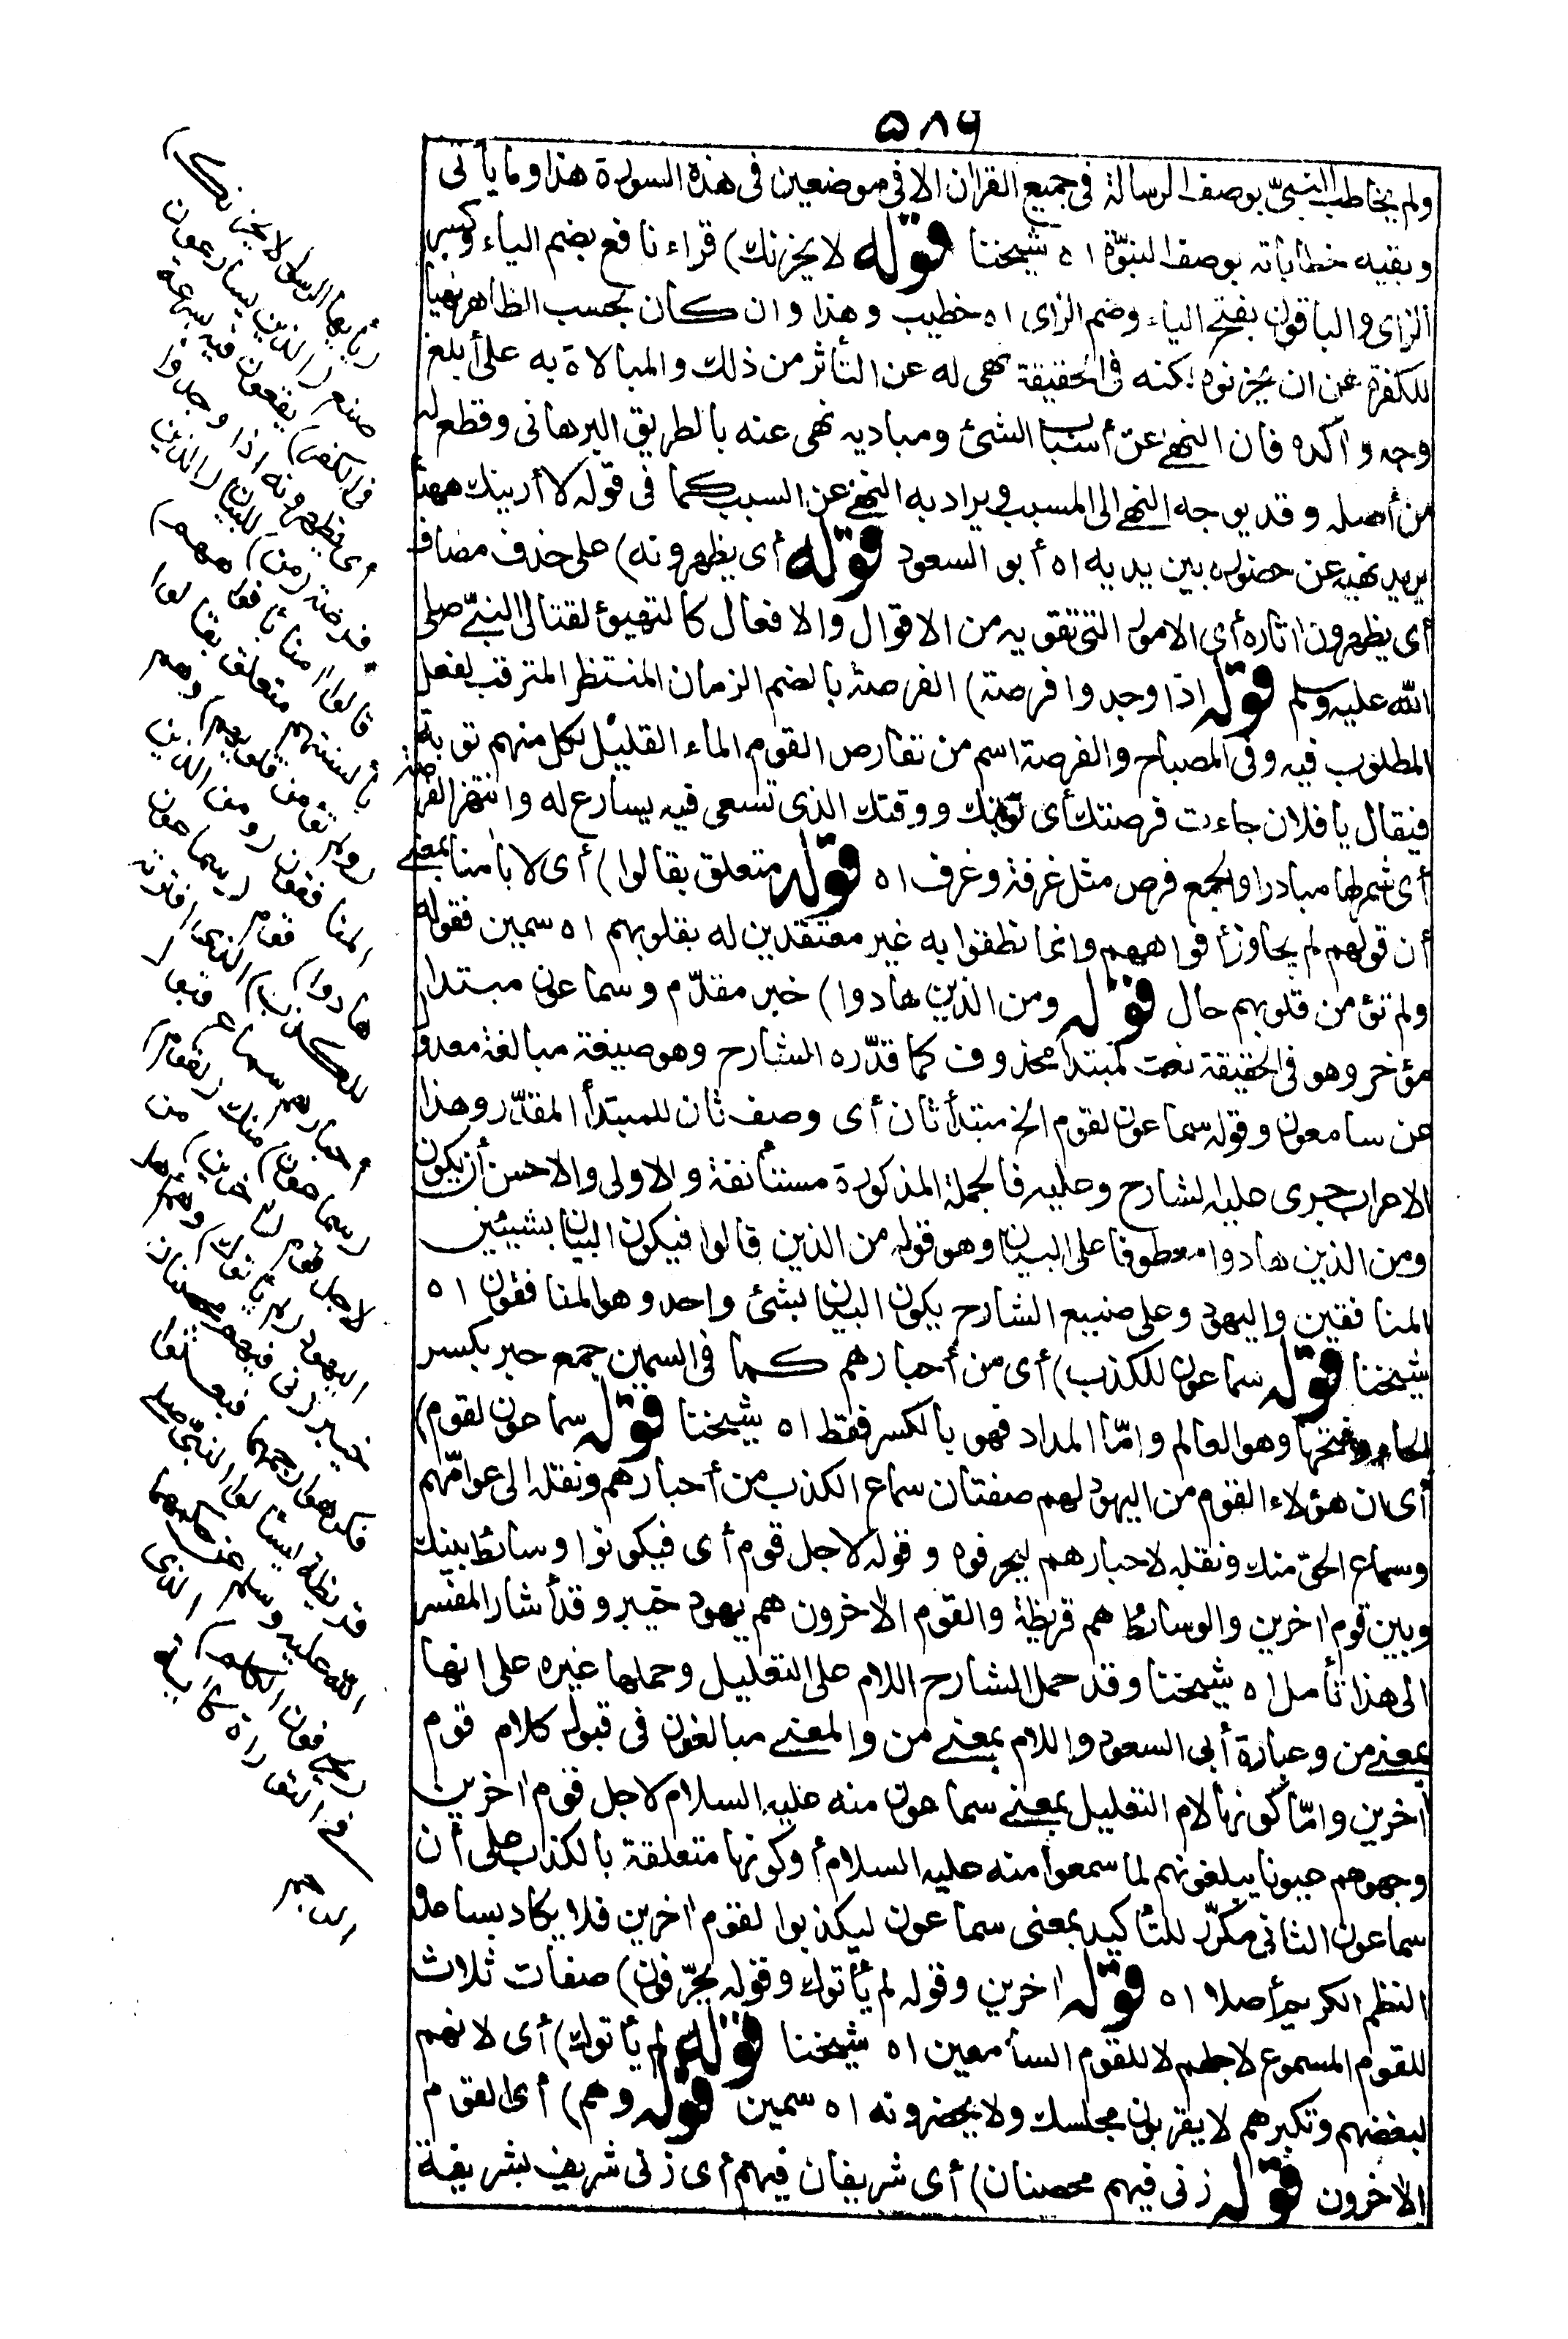 ٥٨٦
ولم يخاطب النبىّ بوصف الرسالة فى جميع القران الا فى موضعين فى هذه السورة هذا وما يأتى
وبقيه خطاباته بوصف النبوّة اه شيخنا قوله لا يحزنك) قراء نافع بضم الياء وكسر
الزاى والباقون بفتح الياء وضم الزاى اه خطيب وهذا وان كان بحسب الظاهر نهيا
للكفرة عن ان يحزنوه لكنه فى الحقيقة نهى له عن التأثر من ذلك والمبالاة به على أبلغ
وجه وأكده فان النهى عن أسباب الشئ ومباديه نهى عنه بالطريق البرهانى وقطع له
من أصله وقد يوجه النهى الى المسبب ويراد به النهى عن السبب كما فى قوله لا أرينك ههنا
يريد نهيه عن حضوره بين يديه اه أبو السعود قوله أى يظهرونه) على حذف مضاف
أى يظهرون اثاره أى الامور التى تقويه من الاقوال والافعال كالتهيؤ لقتال النبىّ صلى
الله عليه وسلم قوله اذا وجدوا فرصة) الفرصة بالضم الزمان المنتظر المترقب لفعل
المطلوب فيه وفى المصباح والفرصة اسم من تفارص القوم الماء القليل لكل منهم نوبة
فيقال يا فلان جاءت فرصتك أى نوبتك ووقتك الذى تسعى فيه يسارع له وانتهز الفرصة
أى شمر لها مبادرا والجمع فرص مثل غرفة وغرف اه قوله متعلق بقالوا) أى لا بامنا بمعنى
أن قولهم لم يجاوز أفواههم وانما نطقوا به غير معتقدين له بقلوبهم اه سمين فقوله
ولم تؤمن قلوبهم حال قوله ومن الذين هادوا) خبر مقدّم وسماعون مبتدا
مؤخر وهو فى الحقيقة نعت لمبتدا محذوف كما قدّره الشارح وهو صيغة مبالغة معدو
عن سامعون وقوله سماعون لقوم الخ مبتدأ ثان أى وصف ثان للمبتدأ المقدّر وهذا
الاعراب جرى عليه الشارح وعليه فالجملة المذكورة مستأنفة والاولى والاحسن أن يكون
ومن الذين هادوا معطوفا على البيان وهو قوله من الذين قالوا فيكون البيان بشيئين
المنافقين واليهود وعلى صنيع الشارح يكون البيان بشئ واحد وهو المنافقون اه
شيخنا قوله سماعون للكذب) أى من أحبارهم كما فى السمين جمع حبر بكسر
الحاء وفتحها وهو العالم وامّا المداد فهو بالكسر فقط اه شيخنا قوله سماعون لقوم)
أى ان هؤلاء القوم من اليهود لهم صفتان سماع الكذب من أحبارهم ونقله الى عوامّهم
وسماع الحقّ منك ونقله لاحبارهم ليحرفوه وقوله لاجل قوم أى فيكونوا وسائط بينك
وبين قوم اخرين والوسائط هم قريظة والقوم الاخرون هم يهود خيبر وقد أشار المفسر
الى هذا تأمل اه شيخنا وقد حمل الشارح اللام على التعليل وحملها غيره على انها
بمعنى من وعبارة أبى السعود واللام بمعنى من والمعنى مبالغون فى قبول كلام قوم
اخرين وامّا كونها لام التعليل بمعنى سماعون منه عليه السلام لاجل قوم اخرين
وجهوهم عيونا يبلغونهم لما سمعوا منه عليه السلام أو كونها متعلقة بالكذب على أن
سماعون الثانى مكرّر للتأكيد بمعنى سماعون ليكذبوا لقوم اخرين فلا يكاد يساعد
النظم الكريم أصلا اه قوله اخرين وقوله لم يأتوك وقوله يحرّفون) صفات ثلاث
للقوم المسموع لاجلهم لا للقوم السامعين اه شيخنا قوله لم يأتوك) أى لانهم
لبغضهم وتكبرهم لا يقربون مجلسك ولا يحضرونه اه سمين قوله وهم) أى القوم
الاخرون قوله زنى فيهم محصنان) أى شريفان فيهم أى زنى شريف بشريفة
(يأيها الرسول لا يحزنك)
صنع (الذين يسارعون
فى الكفر) يقعون فيه بسرعة
أى يظهرونه اذا وجدوا
فرصة (من) للبيان (الذين
قالوا امنا بأفواههم)
بألسنتهم متعلق بقالوا
(ولم تؤمن قلوبهم) وهم
المنافقون (ومن الذين
هادوا) قوم (سماعون
للكذب) الذى افترته
أحبارهم سماع قبول
(سماعون) منك (لقوم)
لاجل قوم (اخرين) من
اليهود (لم يأتوك) وهم أهل
خيبر زنى فيهم محصنان
فكرهوا رجمهما فبعثوا
قريظة ليسألوا النبىّ صلى
الله عليه وسلم عن حكمهما
(يحرفون الكلم) الذى
فى التوراة كاية
الرجم